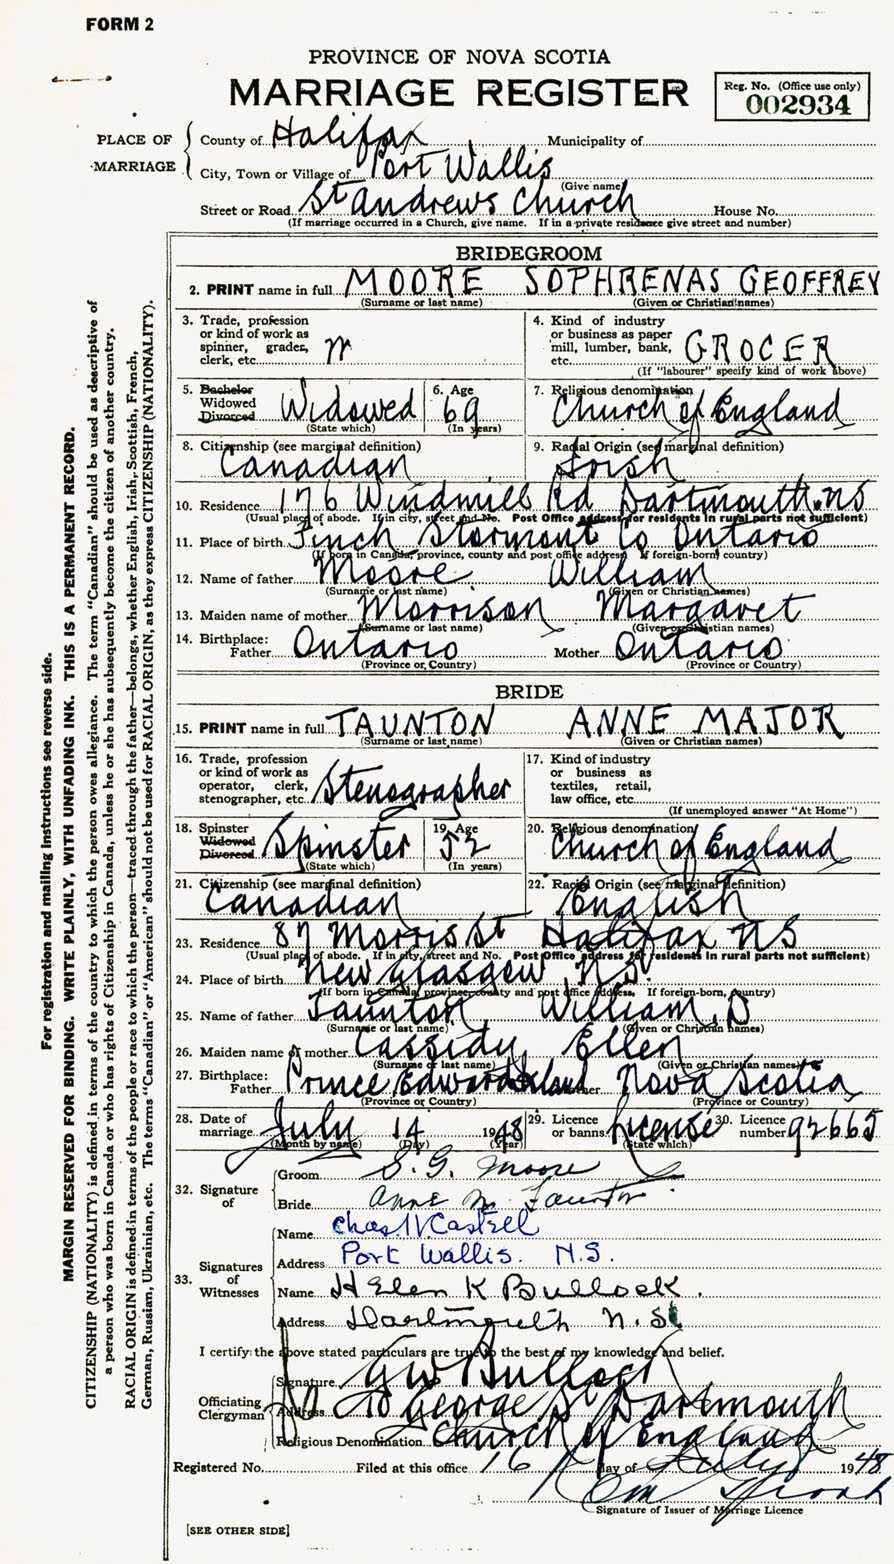 FORM 2
PROVINCE OF NOVA SCOTIA
MARRIAGE REGISTER
Reg. No. (Office use only)
002934
PLACE OF MARRIAGE
County of Halifax Municipality of
City, Town or Village of Port Wallis
(Give name)
Street or Road St Andrews Church House No.
(If marriage occurred in a Church, give name. If in a private residence give street and number)
BRIDEGROOM
2. PRINT name in full MOORE SOPHRENAS GEOFFREY
(Surname or last name) (Given or Christian names)
3. Trade, profession or kind of work as spinner, grader, clerk, etc.
4. Kind of industry or business as paper mill, lumber, bank, etc. GROCER
(If "labourer" specify kind of work above)
5. Bachelor Widowed Divorced Widowed
(State which)
6. Age 69
(In years)
7. Religious denomination Church of England
8. Citizenship (see marginal definition) Canadian
9. Racial Origin (see marginal definition) Irish
10. Residence 176 Windmill Rd Dartmouth. NS
(Usual place of abode. If in city, street and No. Post Office address for residents in rural parts not sufficient)
11. Place of birth Finch Stormont Co Ontario
(If born in Canada, province, county and post office address. If foreign-born, country)
12. Name of father Moore William
(Surname or last name) (Given or Christian names)
13. Maiden name of mother Morrison Margaret
(Surname or last name) (Given or Christian names)
14. Birthplace:
Father Ontario Mother Ontario
(Province or Country) (Province or Country)
BRIDE
15. PRINT name in full TAUNTON ANNE MAJOR
(Surname or last name) (Given or Christian names)
16. Trade, profession or kind of work as operator, clerk, stenographer, etc. Stenographer
17. Kind of industry or business as textiles, retail, law office, etc.
(If unemployed answer "At Home")
18. Spinster Widowed Divorced Spinster
(State which)
19. Age 52
(In years)
20. Religious denomination Church of England
21. Citizenship (see marginal definition) Canadian
22. Racial Origin (see marginal definition) English
23. Residence 87 Morris St Halifax NS
(Usual place of abode. If in city, street and No. Post Office address for residents in rural parts not sufficient)
24. Place of birth New Glasgow N.S.
(If born in Canada, province, county and post office address. If foreign-born, country)
25. Name of father Taunton William D
(Surname or last name) (Given or Christian names)
26. Maiden name of mother Cassidy Ellen
(Surname or last name) (Given or Christian names)
27. Birthplace:
Father Prince Edward Island Mother Nova Scotia
(Province or Country) (Province or Country)
28. Date of marriage July 14 1948
(Month by name) (Day) (Year)
29. Licence or banns License
(State which)
30. Licence number 92665
32. Signature of
Groom S. G. Moore
Bride Anne M. Taunton
33. Signatures of Witnesses
Name Chas. W Castell
Address Port Wallis. N.S.
Name Helen K Bullock.
Address Dartmouth N.S.
I certify the above stated particulars are true to the best of my knowledge and belief.
Officiating Clergyman
Signature G W Bullock
Address George St Dartmouth
Religious Denomination Church of England
Registered No. Filed at this office 16 day of July 1948
Signature of Issuer of Marriage Licence
[SEE OTHER SIDE]
For registration and mailing instructions see reverse side.
MARGIN RESERVED FOR BINDING. WRITE PLAINLY, WITH UNFADING INK. THIS IS A PERMANENT RECORD.
CITIZENSHIP (NATIONALITY) is defined in terms of the country to which the person owes allegiance. The term "Canadian" should be used as descriptive of
a person who was born in Canada or who has rights of Citizenship in Canada, unless he or she has subsequently become the citizen of another country.
RACIAL ORIGIN is defined in terms of the people or race to which the person—traced through the father—belongs, whether English, Irish, Scottish, French,
German, Russian, Ukrainian, etc. The terms "Canadian" or "American" should not be used for RACIAL ORIGIN, as they express CITIZENSHIP (NATIONALITY).